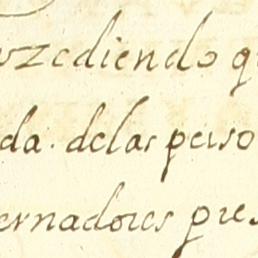 uzediendo q
da. delas perso
ernadores pres